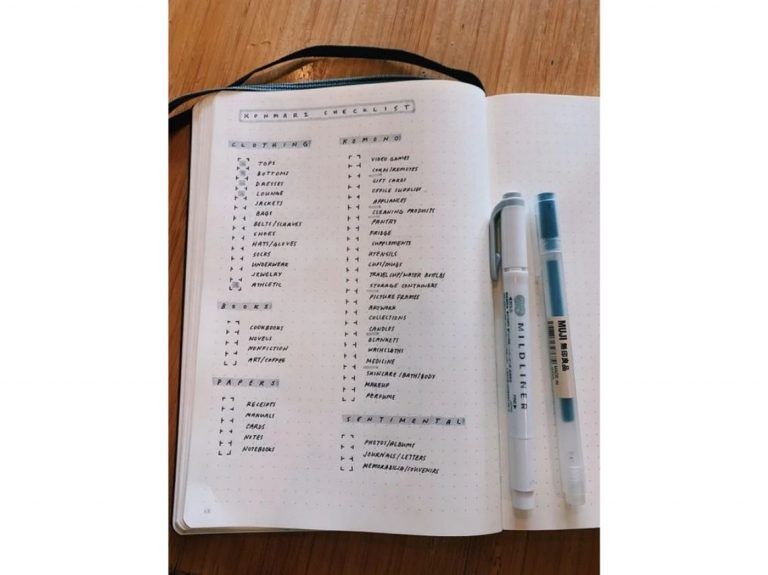 KONMARI CHECKLIST
CLOTHING
TOPS
BOTTOMS
DRESSES
LOUNGE
JACKETS
BAGS
BELTS/SCARVES
SHOES
HATS/GLOVES
SOCKS
UNDERWEAR
JEWELRY
ATHLETIC
BOOKS
COOKBOOKS
NOVELS
NONFICTION
ART/COFFEE
PAPERS
RECEIPTS
MANUALS
CARDS
NOTES
NOTEBOOKS
KOMONO
VIDEO GAMES
CORDS/REMOTES
GIFT CARDS
OFFICE SUPPLIES
APPLIANCES
CLEANING PRODUCTS
PANTRY
FRIDGE
SUPPLEMENTS
UTENSILS
CUPS/MUGS
TRAVEL CUP/WATER BOTTLES
STORAGE CONTAINERS
PICTURE FRAMES
ARTWORK
COLLECTIONS
CANDLES
BLANKETS
WASHCLOTHS
MEDICINE
SKINCARE/BATH/BODY
MAKEUP
PERFUME
SENTIMENTAL
PHOTOS/ALBUMS
JOURNALS/LETTERS
MEMORABILIA/SOUVENIRS
MILDLINER
MUJI 無印良品